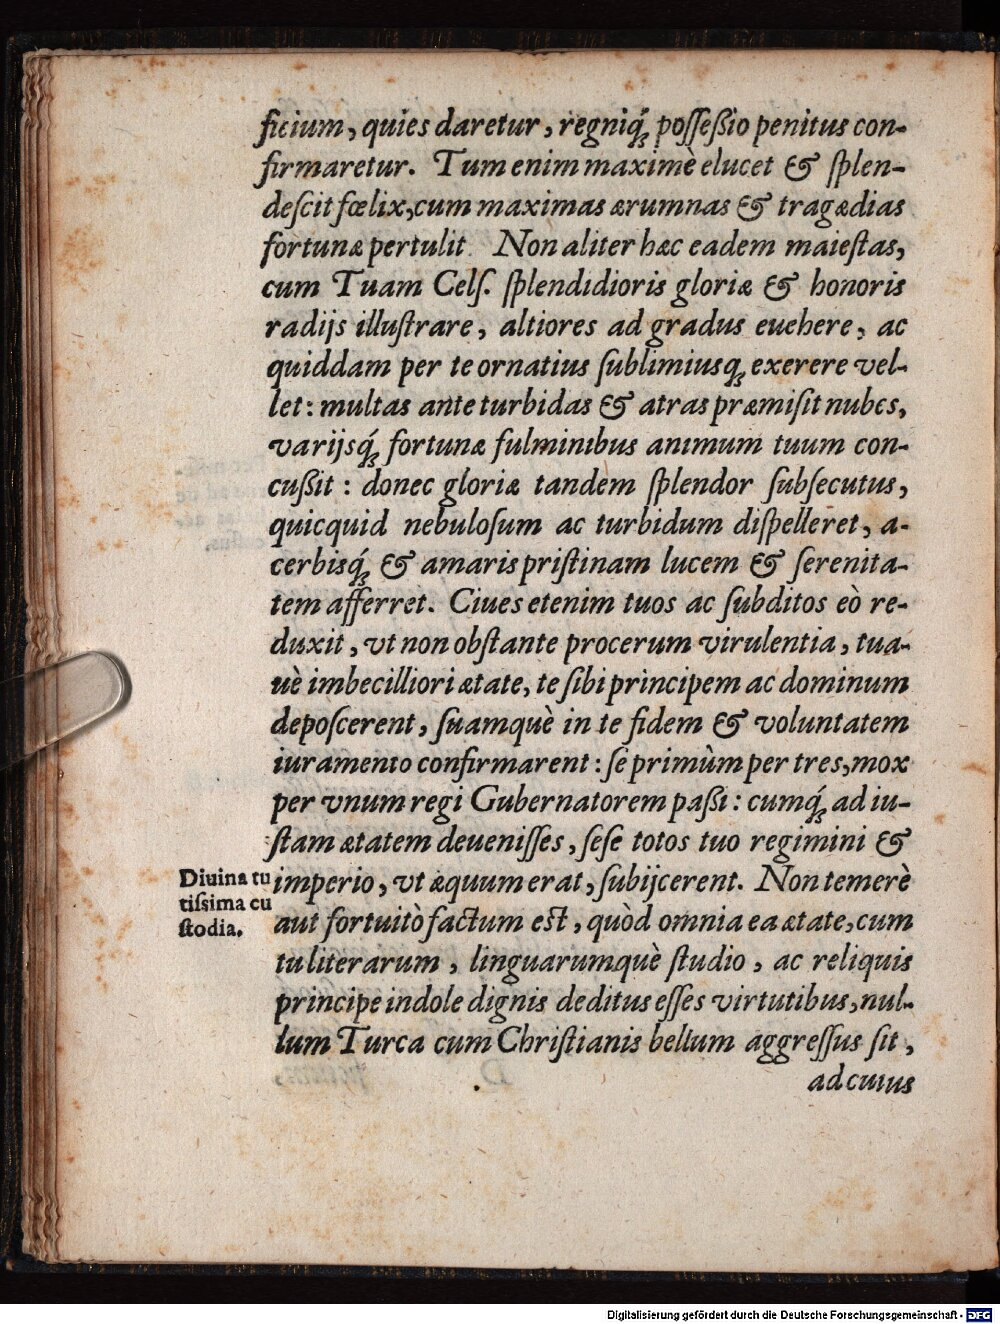 ficium, quies daretur, regniq́; poſſeßio penitus con-
firmaretur. Tum enim maximè elucet & ſplen-
deſcit fœlix, cum maximas ærumnas & tragædias
fortunæ pertulit. Non aliter hæc eadem maieſtas,
cum Tuam Celſ. ſplendidioris gloriæ & honoris
radijs illuſtrare, altiores ad gradus euehere, ac
quiddam per te ornatius ſublimiusq; exerere vel-
let: multas ante turbidas & atras præmiſit nubes,
varijsq́; fortunæ fulminibus animum tuum con-
cußit: donec gloriæ tandem ſplendor ſubſecutus,
quicquid nebuloſum ac turbidum diſpelleret, a-
cerbisq́; & amaris priſtinam lucem & ſerenita-
tem afferret. Ciues etenim tuos ac ſubditos eò re-
duxit, vt non obſtante procerum virulentia, tua-
uè imbecilliori ætate, te ſibi principem ac dominum
depoſcerent, ſuamquè in te fidem & voluntatem
iuramento confirmarent: ſe primùm per tres, mox
per vnum regi Gubernatorem paßi: cumq́; ad iu-
ſtam ætatem deueniſſes, ſeſe totos tuo regimini &
imperio, vt æquum erat, ſubijcerent. Non temerè
aut fortuitò factum eſt, quòd omnia ea ætate, cum
tu literarum, linguarumquè ſtudio, ac reliquis
principe indole dignis deditus eſſes virtutibus, nul-
lum Turca cum Chriſtianis bellum aggreſſus ſit,
ad cuius
Diuina tu
tiſsima cu
ſtodia.
Digitalisierung gefördert durch die Deutsche Forschungsgemeinschaft - DFG